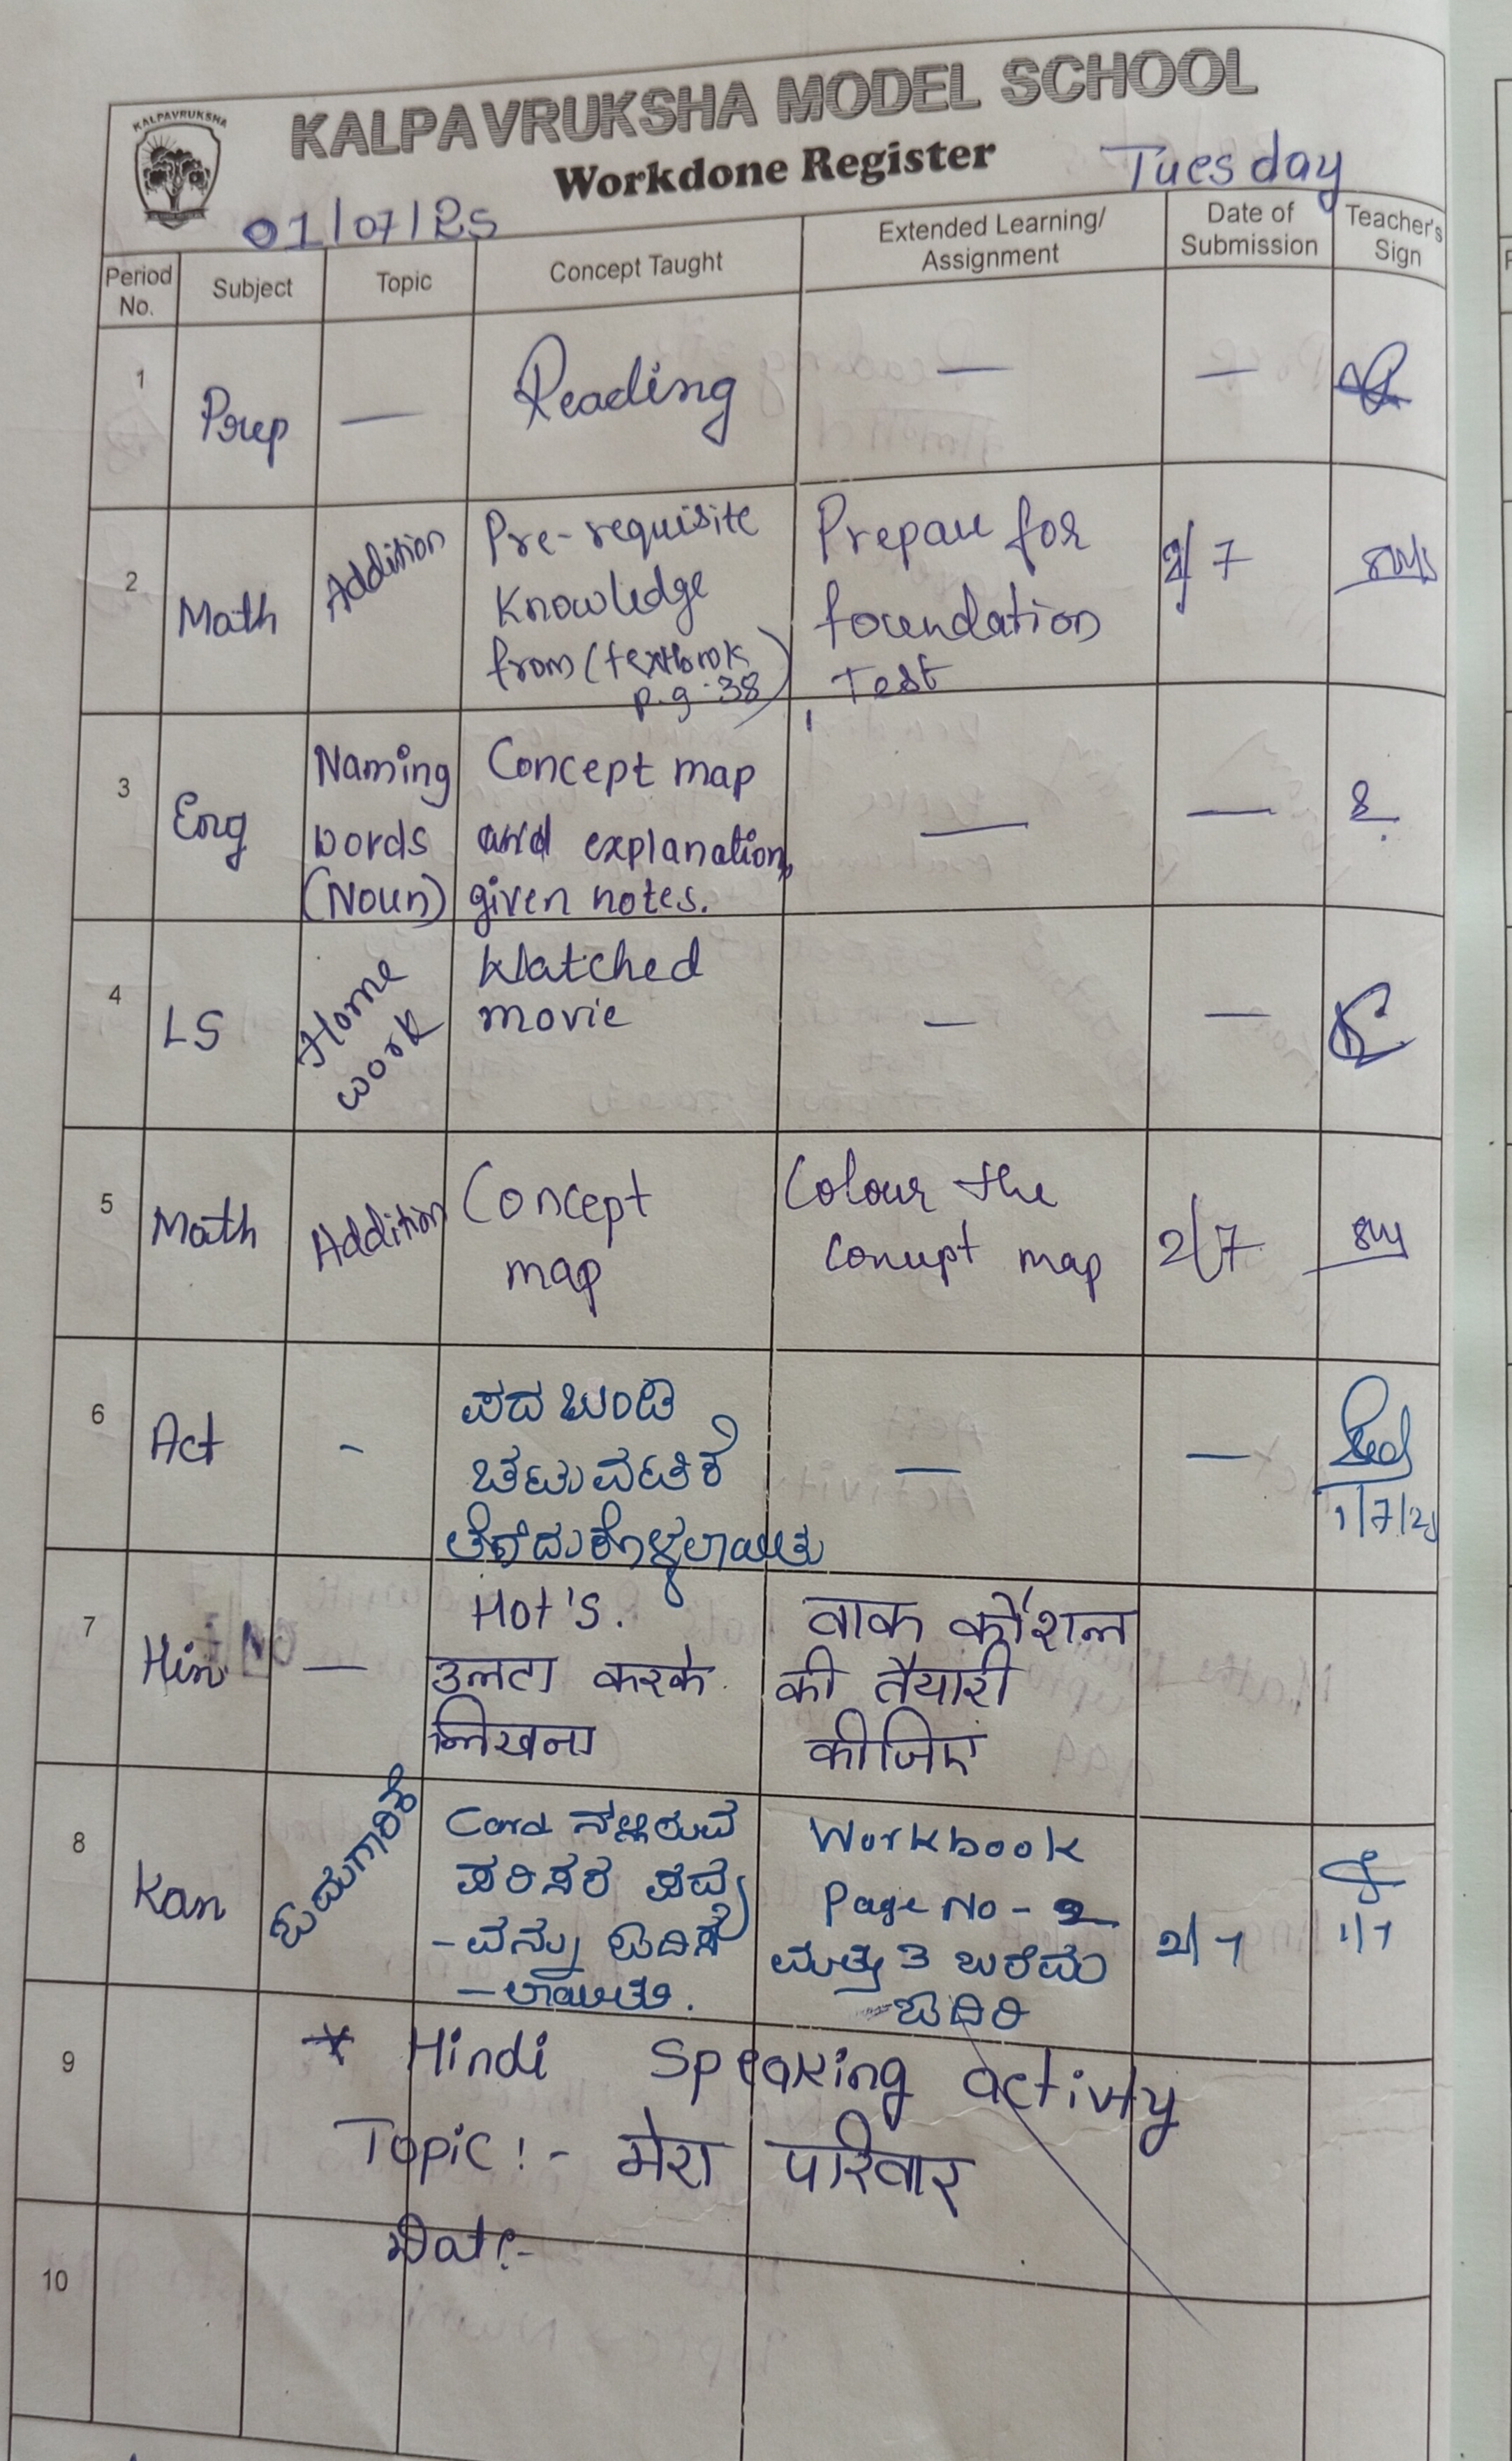 KALPAVRUKSHA
KALPAVRUKSHA MODEL SCHOOL
Workdone Register
Tuesday
01/07/25
Period No.
Subject
Topic
Concept Taught
Extended Learning/ Assignment
Date of Submission
Teacher's Sign
1
Prep
—
Reading
—
—
2
Math
Addition
Pre-requisite
Knowledge
from (textbook
p.g.38)
Prepare for
foundation
Test
2/7
3
Eng
Naming
words
(Noun)
Concept map
and explanation,
given notes.
—
—
4
LS
Home
work
Watched
movie
—
—
5
Math
Addition
Concept
map
Colour the
Concept map
2/7
6
Act
-
ಪದ ಬಂಡಿ
ಚಟುವಟಿಕೆ
ತೆಗೆದುಕೊಳ್ಳಲಾಯಿತು
—
—
1/7/25
7
Hin
—
Hot's.
उलटा करके
लिखना
वाक कौशल
की तैयारी
कीजिए
8
Kan
Card ನಲ್ಲಿರುವ
ಪರಿಸರ ಪದ್ಯ
-ವನ್ನು ಓದಿಸ
-ಲಾಯಿತು.
Workbook
Page No - 2
ಮತ್ತು 3 ಬರೆದು
-ಓದಿರಿ
2/7
1/7
9
* Hindi Speaking activity
Topic:- मेरा परिवार
Date:-
10